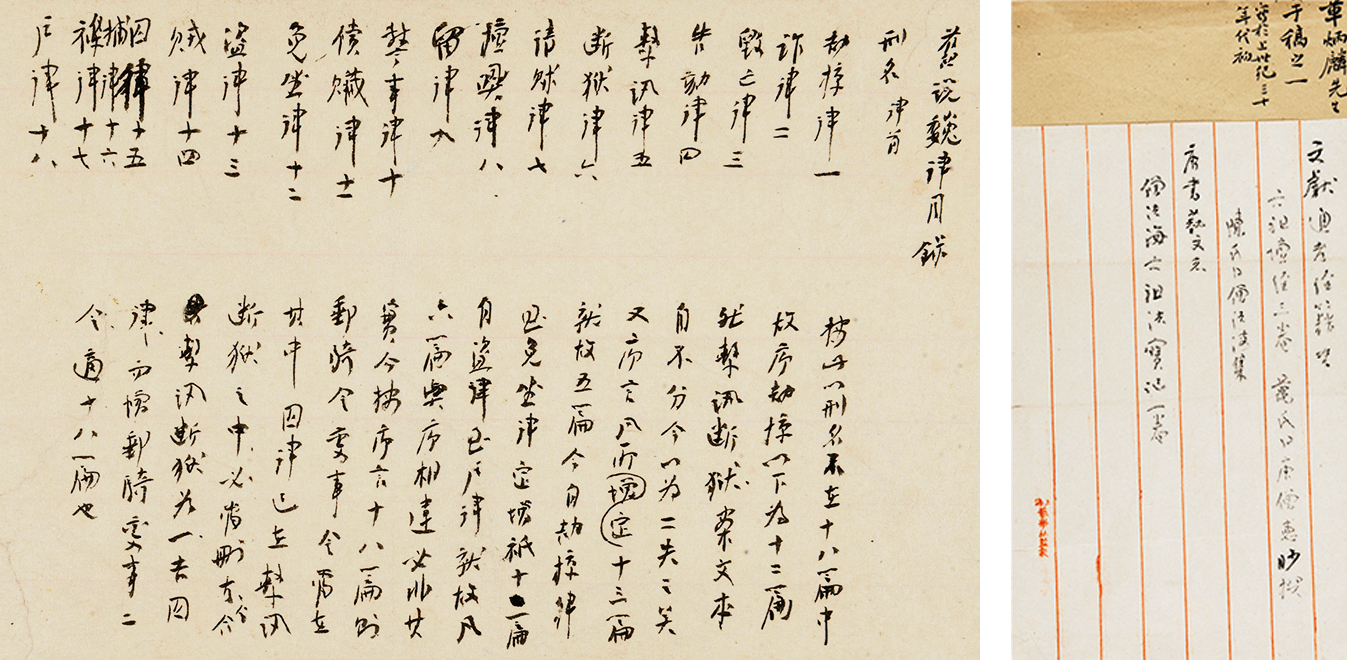 舊說魏律目錄
刑名 律首
劫掠律一
詐律二
毀亡律三
告劾律四
繫訊律五
断狱律六
請賕律七
擅興律八
留律九
驚事律十
償贓律十一
免坐律十二
盜律十三
賊律十四
囚律十五
捕律十六
雜律十七
戶律十八
按此以刑名不在十八篇中
故序劫掠以下为十二篇
然繫訊断狱案文本
自不分今以为二失之矣
又序言凡所增定十三篇
就故五篇今自劫掠律
至免坐律定增祇十二篇
自盜律至戶律就故凡
六篇與序相違必非其
實今按序言十八篇則
郵騎令變事令當在
其中 囚律已在繫訊
断狱之中必當刪去今合
繫訊断狱为一去囚
律而增郵騎變事二
令適十八篇也
章炳麟先生
手稿之一
寫於上世纪三十
年代初
文獻通考經籍攷
六祖壇經三卷 晁氏曰唐僧惠昕撰
陳氏曰僧法海集
唐書藝文志
僧法海六祖法寶記一卷